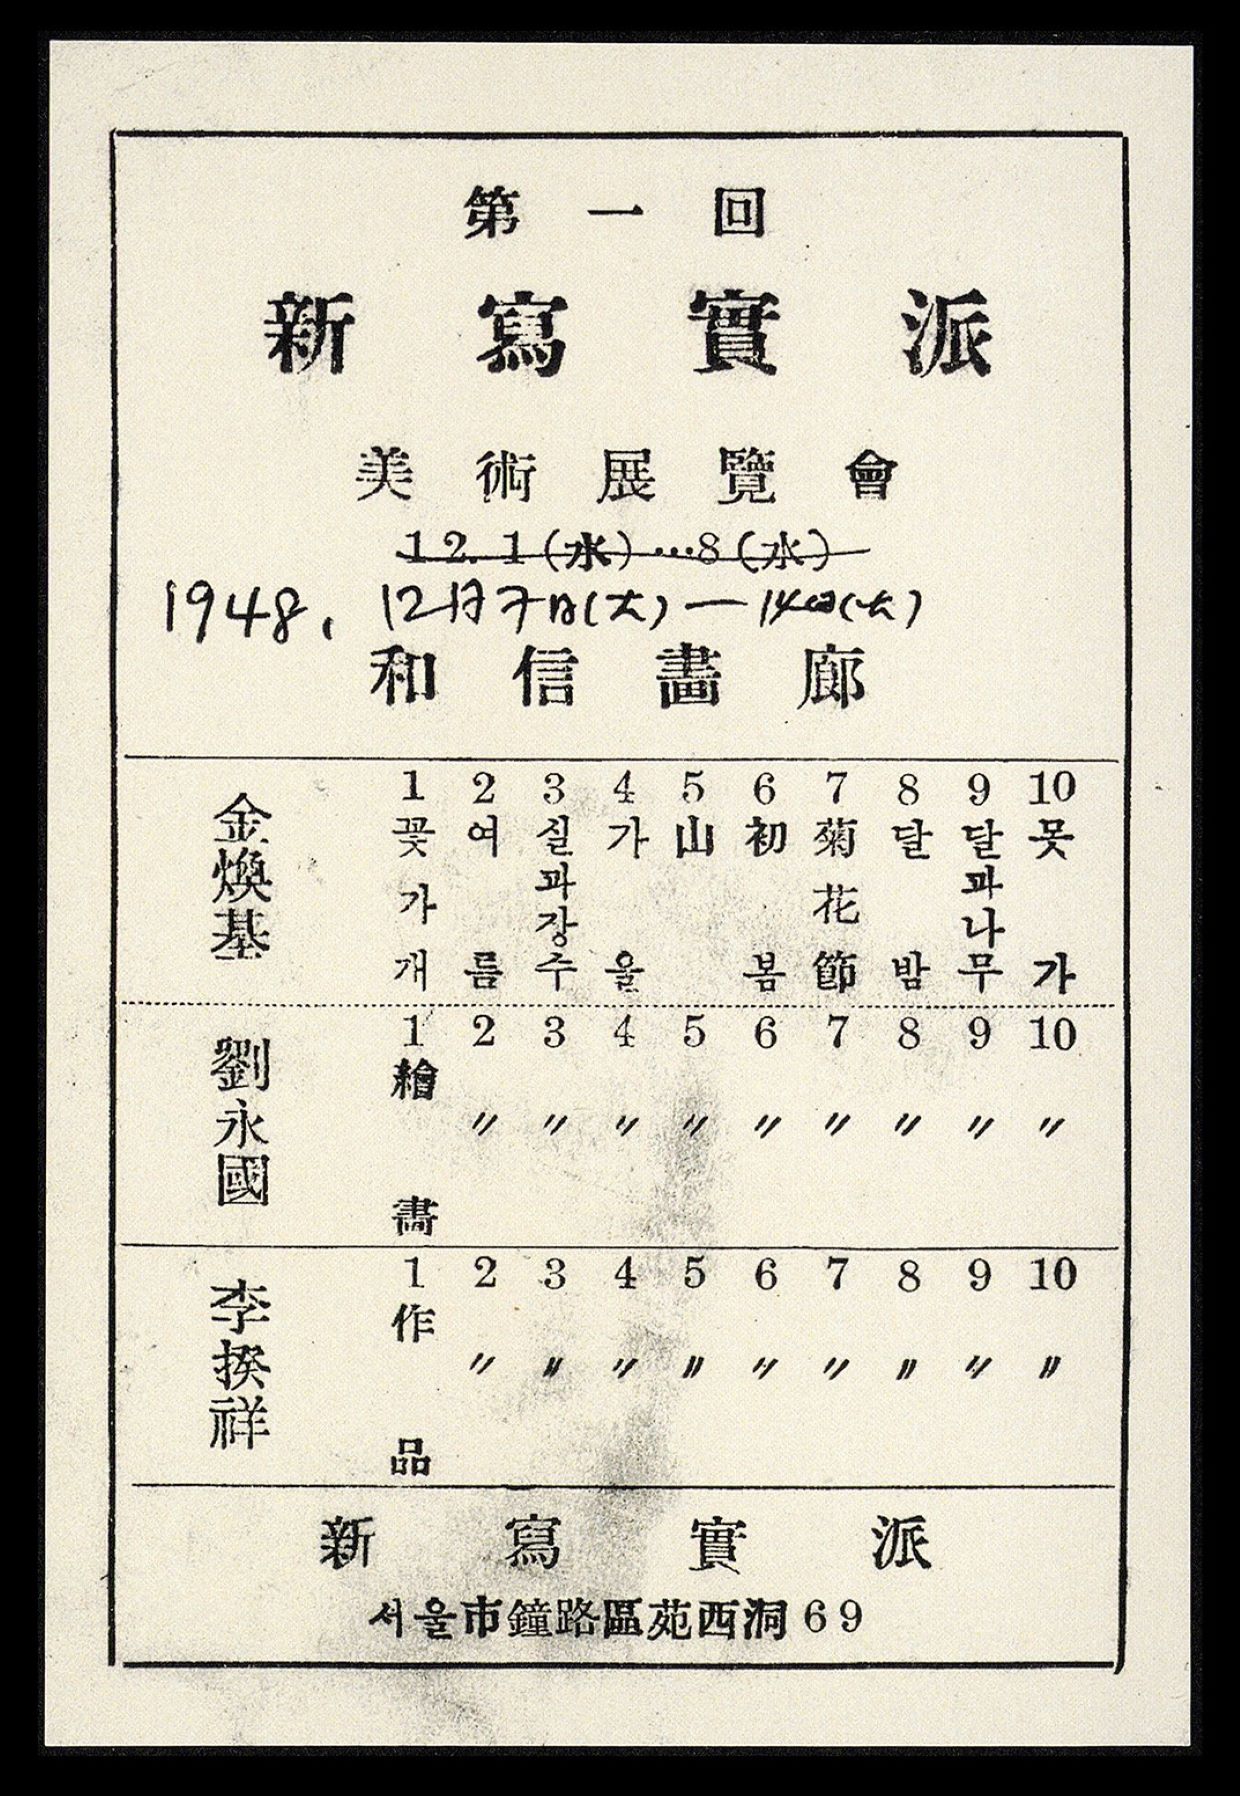 第一回
新寫實派
美術展覽會
12.1(水)…8(水)
1948. 12月7日(火)—14日(火)
和信畵廊
金煥基
1 꽃가개
2 여름
3 실과장수
4 가을
5 山
6 初봄
7 菊花節
8 달밤
9 달과나무
10 못가
劉永國
1 繪畵
2 〃
3 〃
4 〃
5 〃
6 〃
7 〃
8 〃
9 〃
10 〃
李揆祥
1 作品
2 〃
3 〃
4 〃
5 〃
6 〃
7 〃
8 〃
9 〃
10 〃
新寫實派
서울市鐘路區苑西洞69